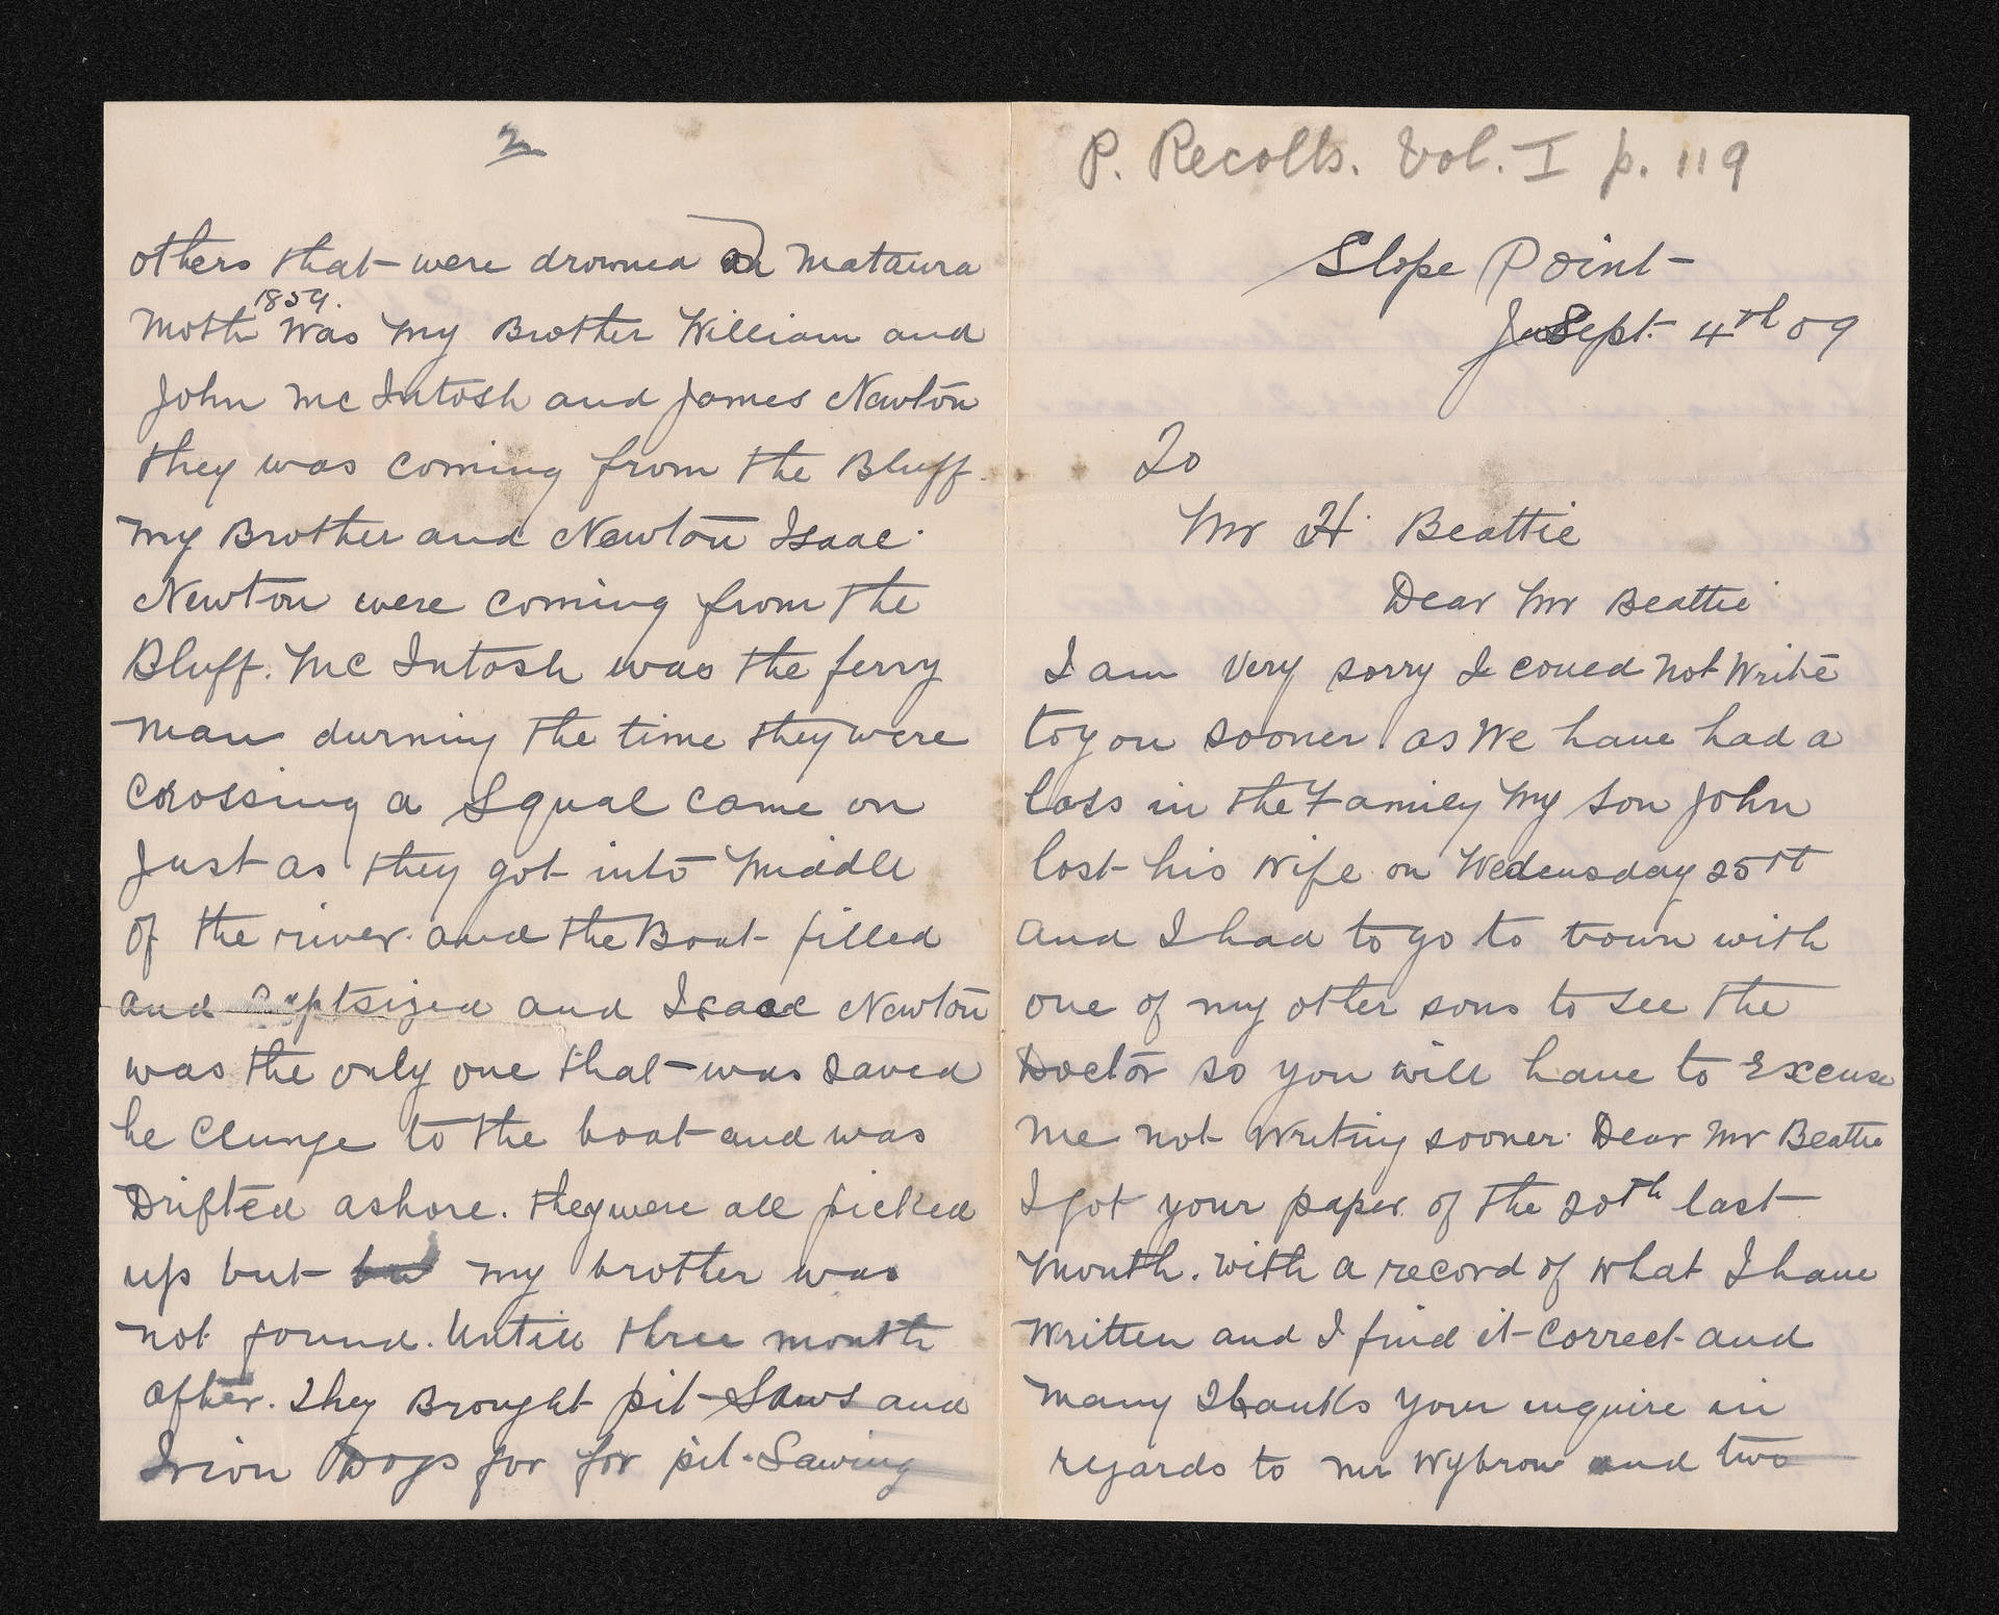 P. Recolls. Vol. I p. 119
Slope Point
Sept. 4th 09
To
Mr H. Beattie
Dear Mr Beattie
I am very sorry I coued not Write
to you sooner as We have had a
loss in the Family My son John
lost his Wife on Wedensday 25th
and I had to go to town with
one of my other sons to see the
Doctor so you will have to Excuse
me not Writing sooner. Dear Mr Beattie
I got your paper of the 20th last
Month. with a record of what I have
Written and I find it correct and
Many Thanks your inquire in
regards to Mr Wybrow and two
2
others that were drowned Mataura
Moth 1859. Was My Brother William and
John Mc Intosh and James Newton
they was coming from the Bluff.
My Brother and Newton Isaac.
Newton were coming from the
Bluff. Mc Intosh was the ferry
man durning the time they were
Crossing a Squal came on
Just as they got into Middle
of the river. and the Boat filled
and and Isaac Newton
was the only one that was saved
he Clunge to the boat and was
Drifted ashore. they were all picked
up but my brother was
not found. Untill three month
after. They Brought pit Saws and
Irion Dogs for for pit. Sawing